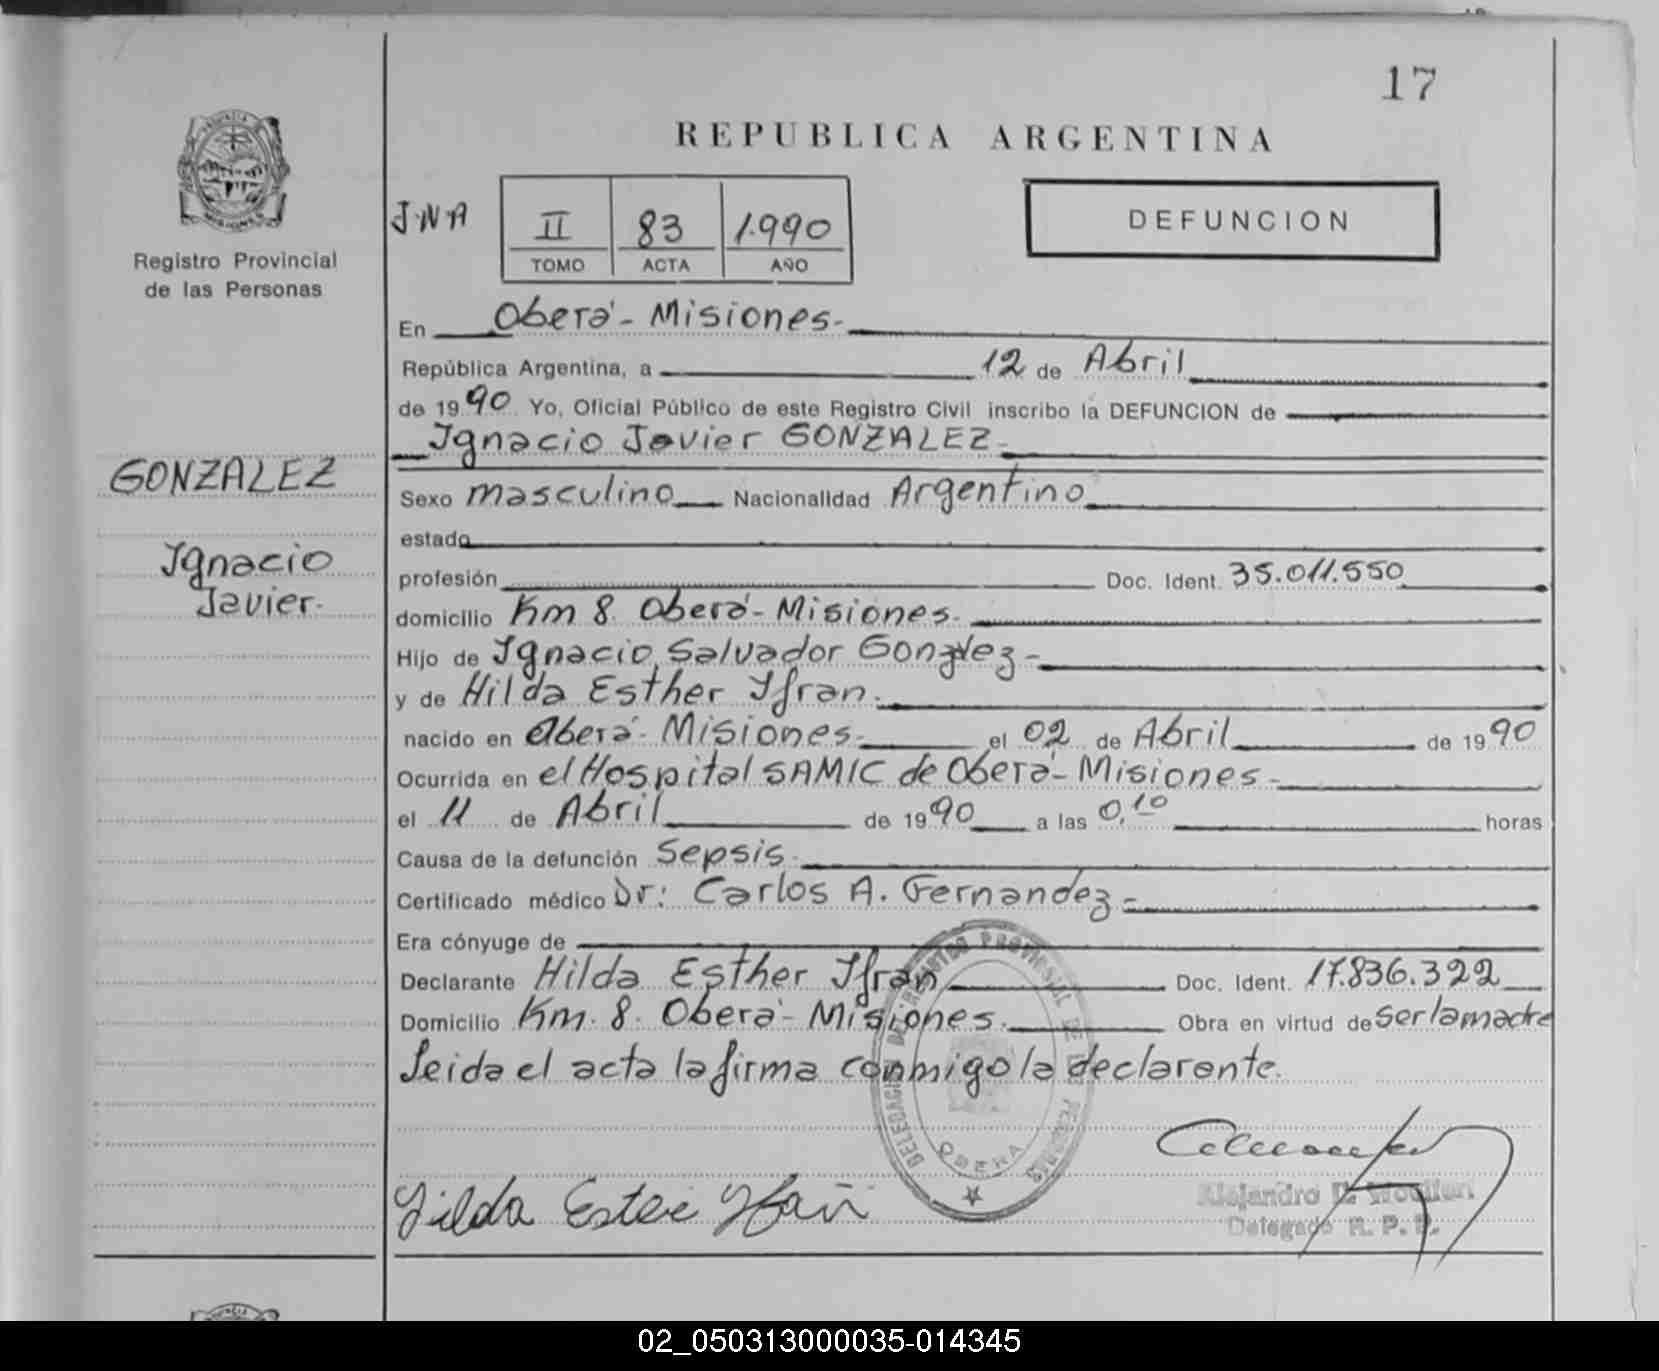 17
REPUBLICA ARGENTINA
PROVINCIA
MISIONES
Registro Provincial
de las Personas
J.N.A
II 83 1.990
TOMO ACTA AÑO
DEFUNCION
En Oberá - Misiones -
República Argentina, a 12 de Abril
de 1990 Yo, Oficial Público de este Registro Civil inscribo la DEFUNCION de
Ignacio Javier GONZALEZ -
GONZALEZ
Ignacio
Javier.
Sexo masculino Nacionalidad Argentino
estado
profesión Doc. Ident. 35.011.550
domicilio Km 8. Oberá - Misiones.
Hijo de Ignacio Salvador Gonzalez -
y de Hilda Esther Ifran.
nacido en Oberá - Misiones. el 02 de Abril de 1990
Ocurrida en el Hospital SAMIC de Oberá - Misiones -
el 11 de Abril de 1990 a las 0,10 horas
Causa de la defunción Sepsis.
Certificado médico Dr: Carlos A. Fernandez -
Era cónyuge de
Declarante Hilda Esther Ifran Doc. Ident. 17.836.322
Domicilio Km. 8. Oberá - Misiones. Obra en virtud de ser la madre
Leida el acta la firma conmigo la declarante.
DELEGACION DEL REGISTRO PROVINCIAL DE LAS PERSONAS
OBERA
Hilda Ester
Alejandro
Delegado R. P. P.
02_050313000035-014345